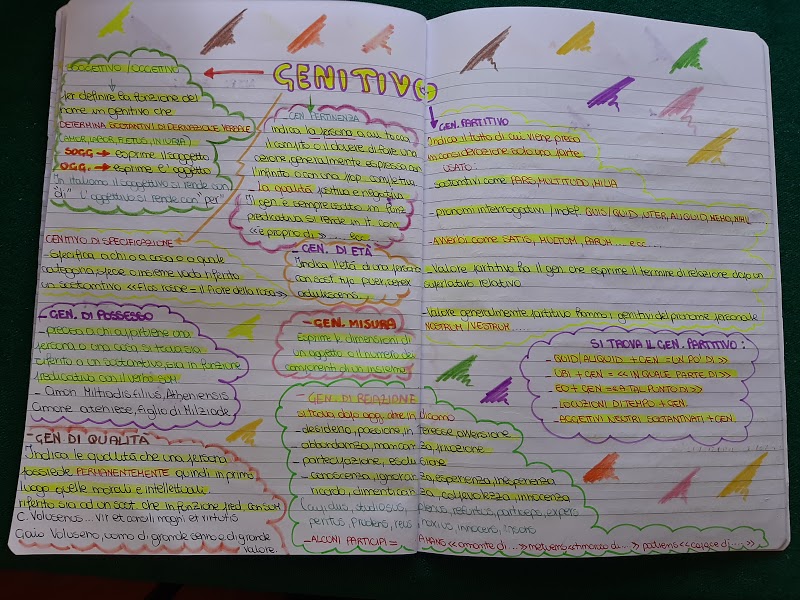 GENITIVO
SOGGETTIVO / OGGETTIVO
per definire la funzione del
nome in genitivo che
DETERMINA SOSTANTIVI DI DERIVAZIONE VERBALE
(AMOR, METUS, INIURIA)
SOGG → esprime il soggetto
OGG → esprime l'oggetto
In italiano il soggettivo si rende con
"di" l'oggettivo si rende con "per"
GENITIVO DI SPECIFICAZIONE
- specifica a chi o a cosa o a quale
categoria, specie o insieme vada riferito
un sostantivo «Flos rosae = il fiore della rosa»
- GEN. DI POSSESSO
- precisa a chi appartiene una
persona o una cosa, si trova sia
riferito a un sostantivo, sia in funzione
predicativa con il verbo sum
- Cimon Miltiadis filius, Atheniensis
Cimone ateniese, figlio di Milziade
- GEN DI QUALITÀ
Indica le qualità che una persona
possiede PERMANENTEMENTE quindi in primo
luogo quelle morali e intellettuali
riferito sia ad un sost. che in funzione pred. con sum
C. Volusenus... vir et consili magni et virtutis
Gaio Voluseno, uomo di grande senno e di grande
valore.
GEN PERTINENZA
Indica la persona a cui tocca
il compito o il dovere di fare una
azione generalmente espressa con
l'infinito o con una prop. completiva
- la qualità positiva e negativa
Il gen. è sempre usato in funz
predicativa si rende in it. con
«è proprio di» ... ecc
- GEN. DI ETÀ
Indica l'età di una persona
con sost tipo puer, senex
adulescens...
- GEN. MISURA
Esprime le dimensioni di
un oggetto o il numero dei
componenti di un insieme
- GEN. DI RELAZIONE
si trova dopo agg. che indicano
- desiderio, passione, interesse, avversione
- abbondanza, mancanza, privazione
- partecipazione, esclusione
- conoscenza, ignoranza, esperienza, inesperienza
- ricordo, dimenticanza, colpevolezza, innocenza
cupidus, studiosus, plenus, refertus, particeps, expers
peritus, prudens, reus, noxius, innocens, insons
- ALCUNI PARTICIPI = AMANS «amante di...» metuens «timoroso di...» patiens «capace di...»
GEN. PARTITIVO
Indica il tutto di cui viene preso
in considerazione solo una parte
USATO:
sostantivi come PARS, MULTITUDO, MILIA
- pronomi interrogativi / indef. QUIS/QUID, UTER, ALIQUID, NEMO, NIHIL
- Avverbi come SATIS, MULTUM, PARUM ... ecc...
- Valore partitivo ha il gen che esprime il termine di relazione dopo un
superlativo relativo
Valore generalmente partitivo hanno i genitivi del pronome personale
NOSTRUM / VESTRUM....
SI TROVA IL GEN. PARTITIVO:
- QUID/ALIQUID + GEN = «UN PO' DI»
- UBI + GEN = «IN QUALE PARTE DI»
- EO + GEN = «A TAL PUNTO DI»
- LOCUZIONI DI TEMPO + GEN
- AGGETTIVI NEUTRI SOSTANTIVATI + GEN